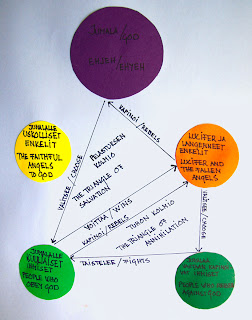 JUMALA/
GOD
EHJEH/EHYEH
KAPINOI/REBELS
VALITSEE/CHOOSE
JUMALALLE
USKOLLISET
ENKELIT
THE FAITHFUL
ANGELS
TO GOD
LUCIFER JA
LANGENNEET
ENKELIT
LUCIFER AND
THE FALLEN
ANGELS
PELASTUKSEN
KOLMIO
THE TRIANGLE OF
SALVATION
VOITTAA/WINS
KAPINOI/REBELS
TUHON KOLMIO
THE TRIANGLE OF
ANNIHILATION
VALITSEE/CHOOSE
JUMALALLE
KUULIAISET
IHMISET
PEOPLE WHO
OBEY GOD
TAISTELEE/FIGHTS
JUMALAA
VASTAAN KAPINOI-
VAT IHMISET
PEOPLE WHO
AGAINST GOD